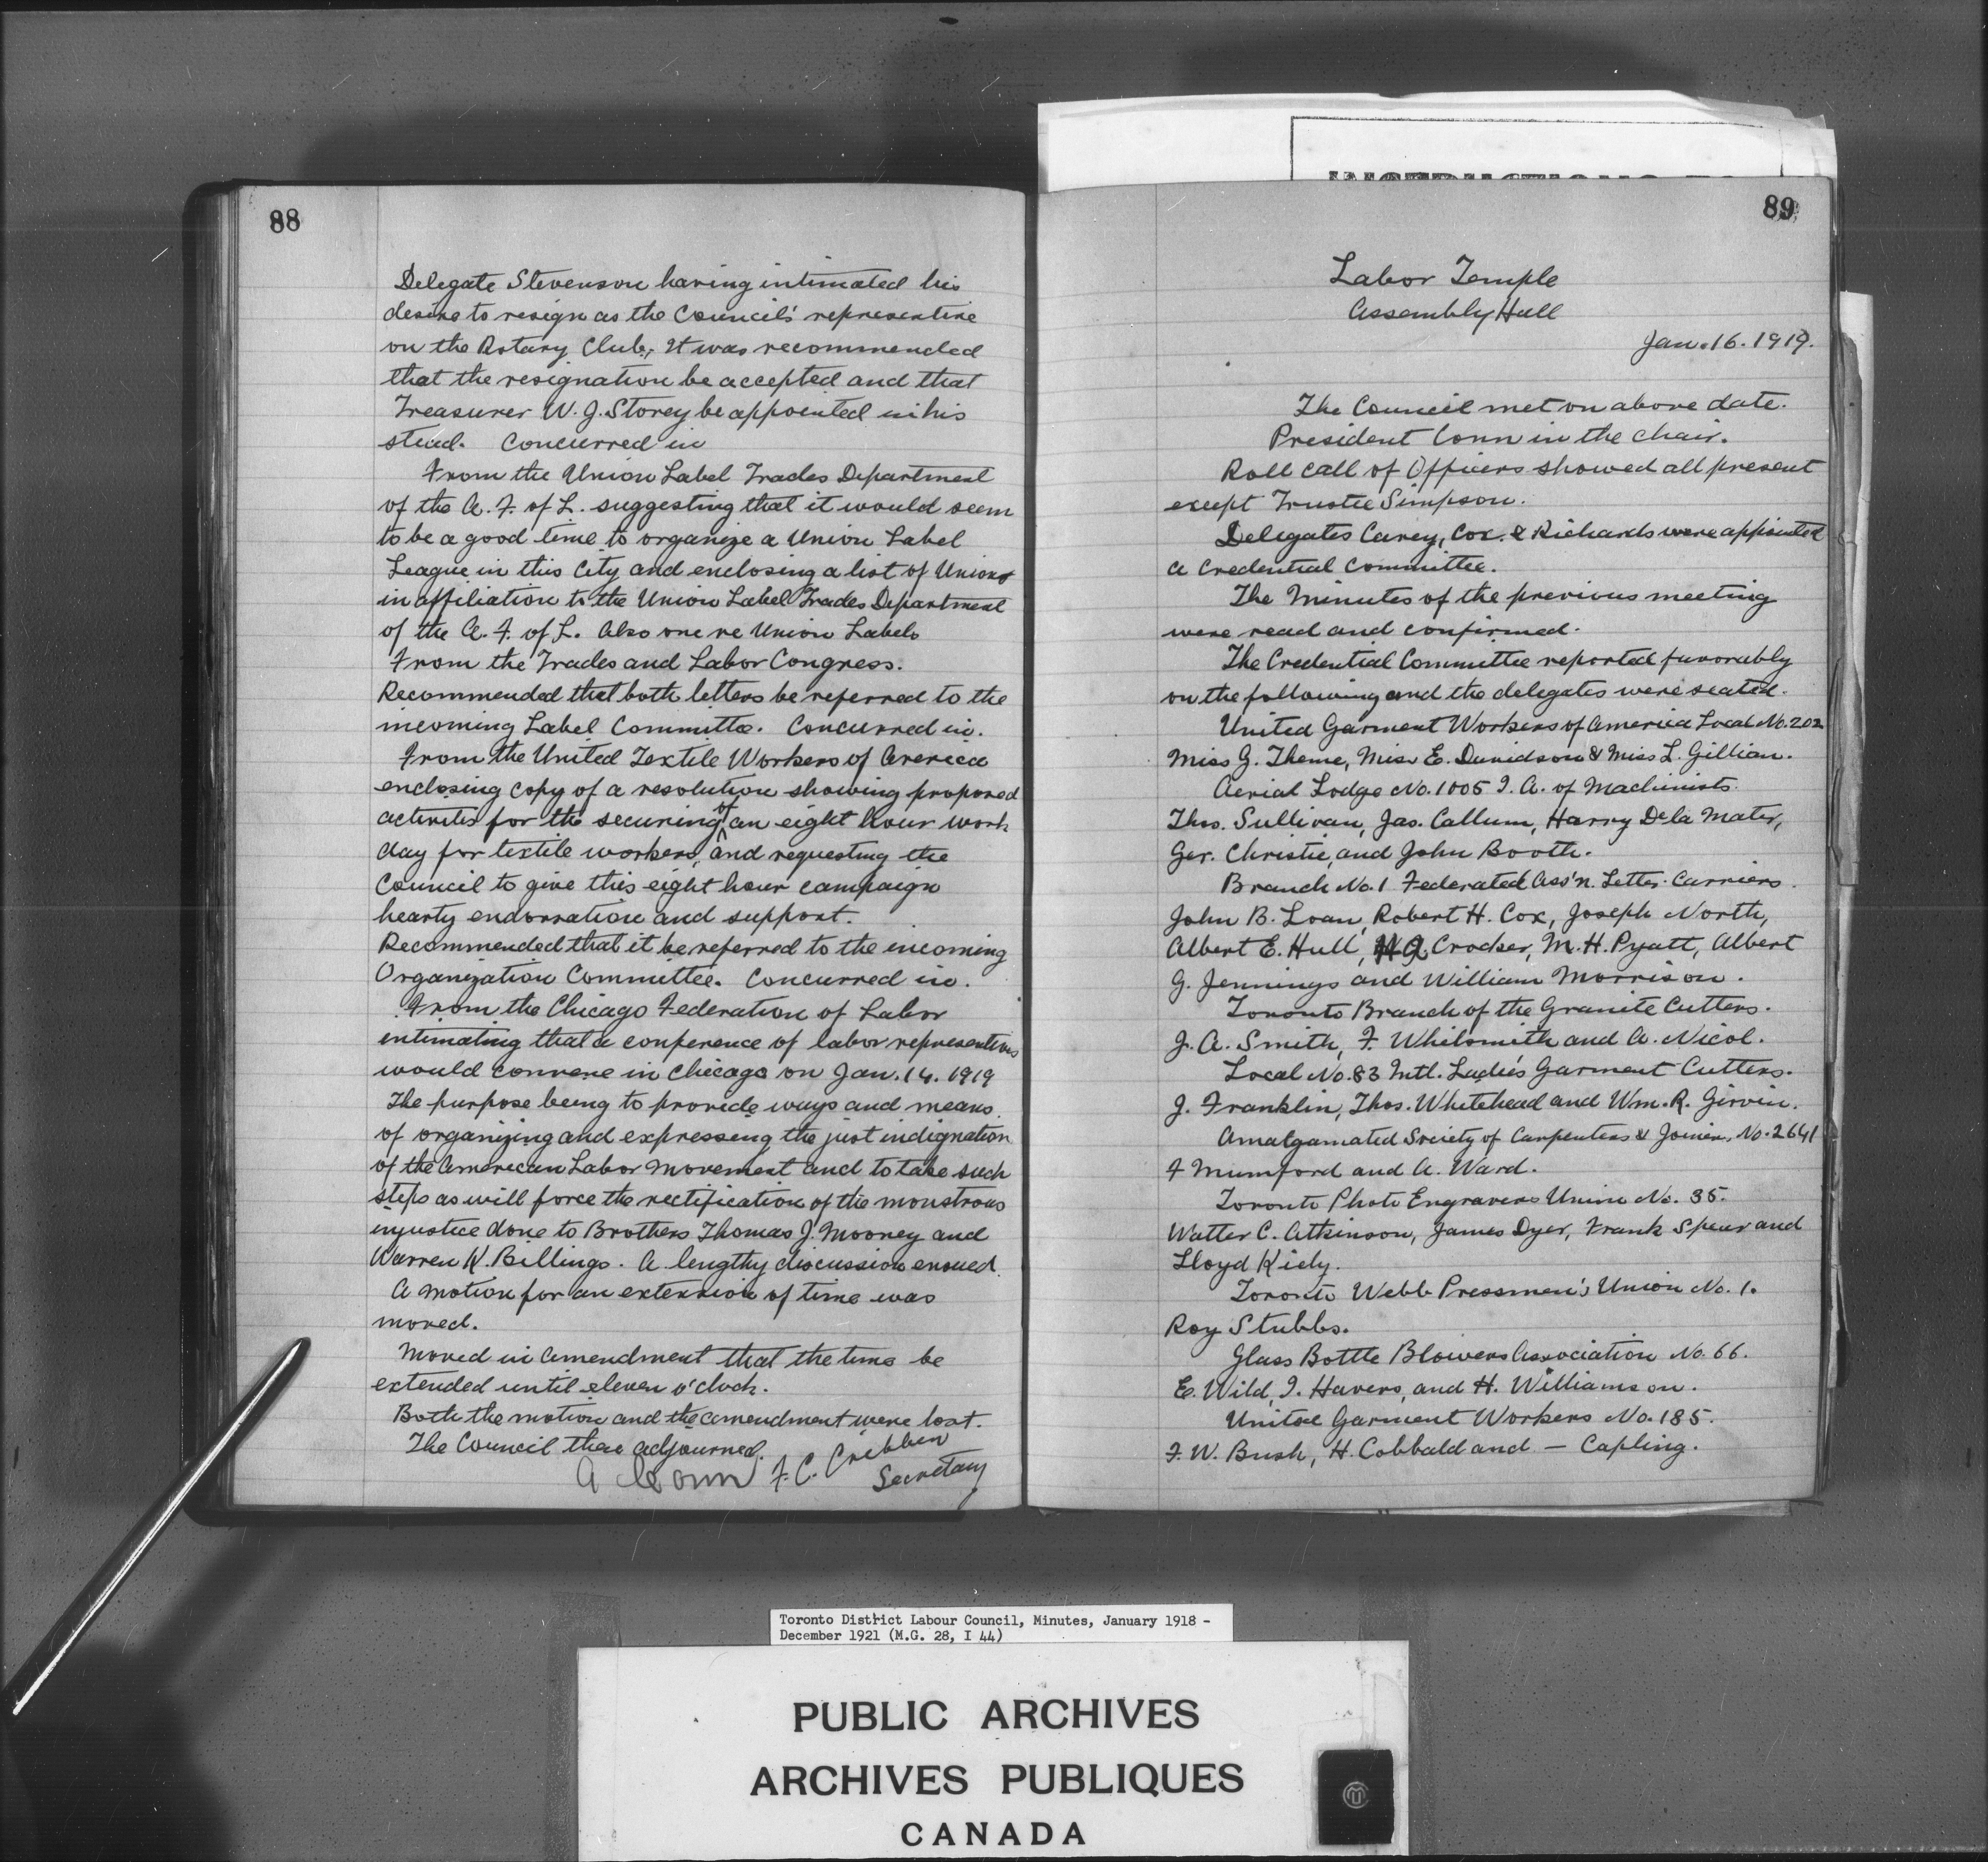 88
Delegate Stevenson having intimated his
desire to resign as the Council's representive
on the Rotary Club, It was recommended
that the resignation be accepted and that
Treasurer W. J. Storey be appointed in his
stead. Concurred in
From the Union Label Trades Department
of the A. F. of L. suggesting that it would seem
to be a good time to organize a Union Label
League in this City and enclosing a list of Unions
in affiliation to the Union Label Trades Department
of the A. F. of L. Also one re Union Labels
From the Trades and Labor Congress.
Recommended that both letters be referred to the
incoming Label Committe. Concurred in.
From the United Textile Workers of America
enclosing copy of a resolution showing proposed
activites for the securing of an eight hour work
day for textile workers, and requesting the
Council to give this eight hour campaign
hearty endorsation and support.
Recommended that it be referred to the incoming
Organization Committee. Concurred in.
From the Chicago Federation of Labor
intimating that a conference of labor representives
would convene in Chicago on Jan. 14. 1919
The purpose being to provide ways and means
of organizing and expressing the just indignation
of the American Labor Movement and to take such
steps as will force the rectification of the monstrous
injustice done to Brothers Thomas J. Mooney and
Warren K. Billings. A lengthy discussion ensued.
A motion for an extension of time was
moved.
Moved in amendment that the time be
extended until eleven o'clock.
Both the motion and the amendment were lost.
The Council then adjourned.
A Conn F. C. Cribben
Secretary
89
Labor Temple
Assembly Hall
Jan. 16. 1919.
The Council met on above date.
President Conn in the chair.
Roll call of Officers showed all present
except Trustee Simpson.
Delegates Carey, Cox. & Richards were appointed
a Credential Committee.
The Minutes of the previous meeting
were read and confirmed.
The Credential Committee reported favorably
on the following and the delegates were seated.
United Garment Workers of America Local No. 202
Miss G. Theme, Miss E. Davidson & Miss L. Gillian.
Aerial Lodge No. 1005 I. A. of Machinists.
Thos. Sullivan, Jas. Callum, Harry De la Mater,
Geo. Christie, and John Booth.
Branch No. 1 Federated Ass'n. Letter Carriers.
John B. Loan, Robert H. Cox, Joseph North,
Albert E. Hull, Crocker, M. H. Pyatt, Albert
G. Jennings and William Morrison.
Toronto Branch of the Granite Cutters.
J. A. Smith, F. Whilsmith and A. Nicol.
Local No. 83 Intl. Ladie's Garment Cutters.
J. Franklin, Thos. Whitehead and Wm. R. Girvin.
Amalgamated Society of Carpenters & Joiners, No. 2641
F Mumford and A. Ward.
Toronto Photo Engravers Union No. 35.
Walter C. Atkinson, James Dyer, Frank Spear and
Lloyd Kiely.
Toronto Webb Pressmen's Union No. 1.
Roy Stubbs.
Glass Bottle Blowers Association No. 66.
E. Wild, I. Havers, and H. Williamson.
United Garment Workers No. 185.
F. W. Bush, H. Cobbald and — Capling.
Toronto District Labour Council, Minutes, January 1918 -
December 1921 (M.G. 28, I 44)
PUBLIC ARCHIVES
ARCHIVES PUBLIQUES
CANADA